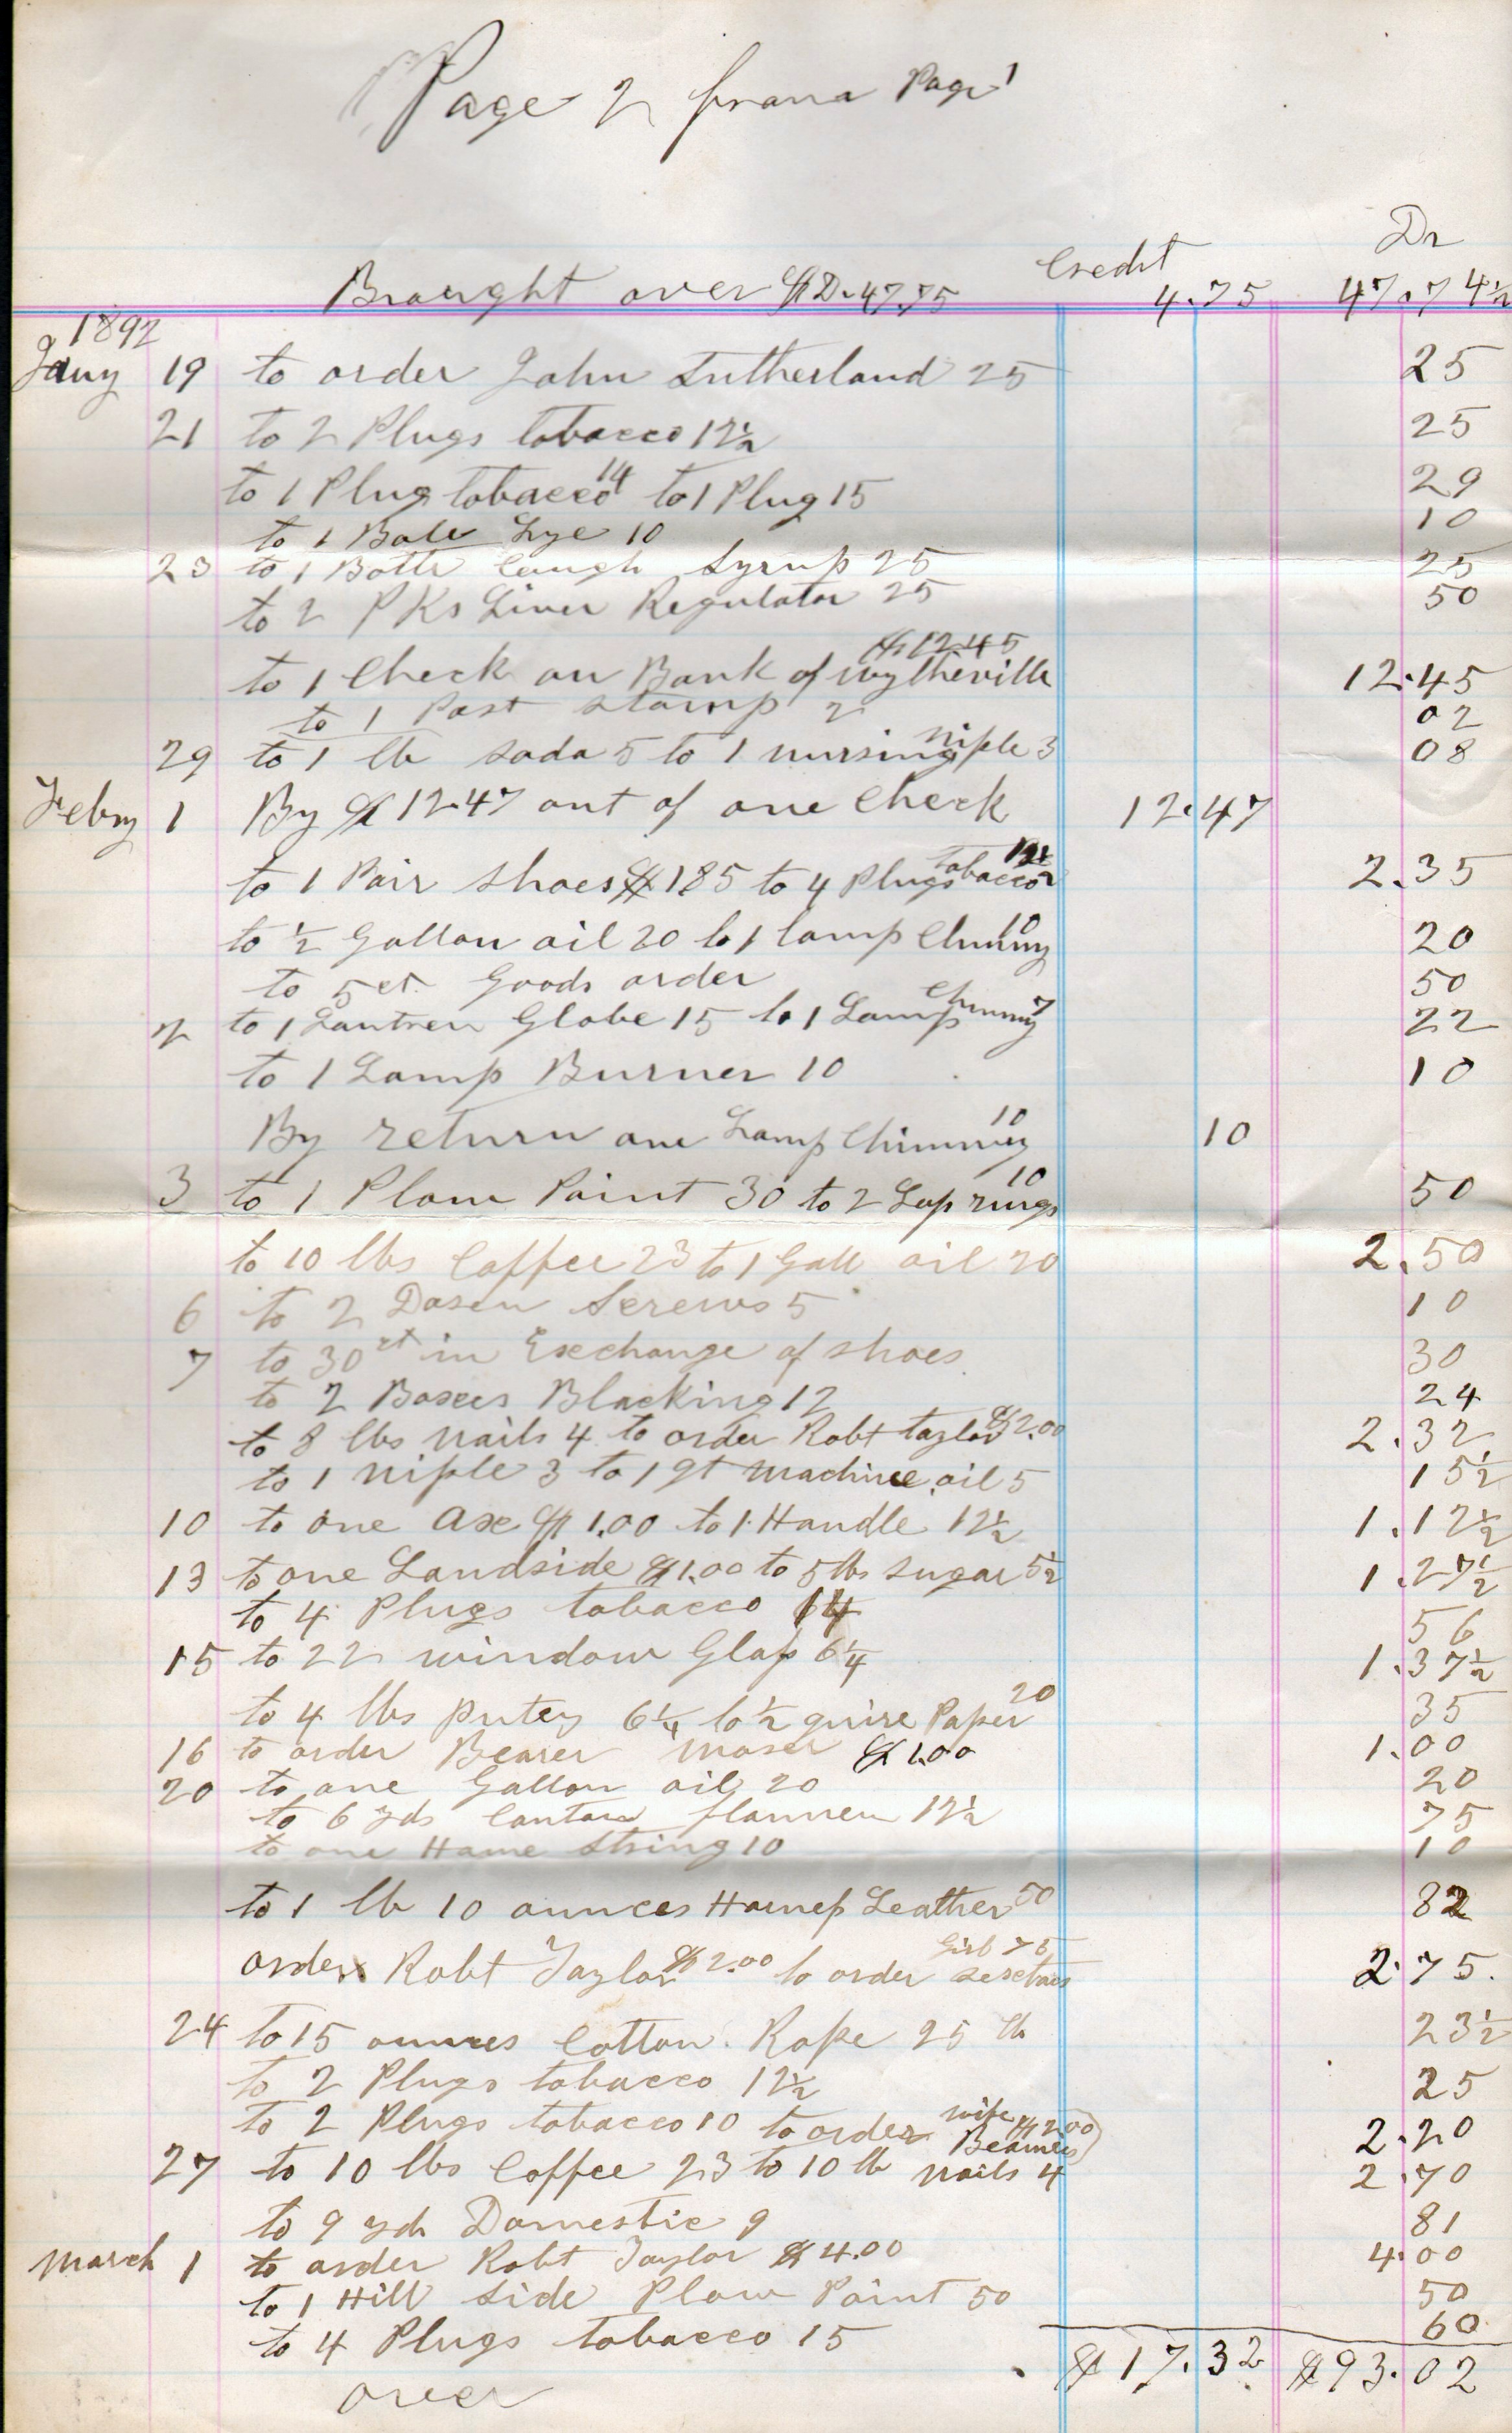 Page 2 from Page 1
Credit Dr
Brought over $D. 47.75 4.75 47.74½
1892
Jany 19 to order John Sutherland 25 25
21 to 2 Plugs tobacco 12½ 25
to 1 Plug tobacco 14 to 1 Plug 15 29
to 1 Lye 10 10
23 to 1 Bottle Cough Syrup 25 25
to 2 PKs Liver Regulator 25 50
to 1 Check on Bank of Wytheville $12.45 12.45
to 1 Post stamp 2 02
29 to 1 lb soda 5 to 1 nursing niple 3 08
Febry 1 By $12.47 out of one Check 12.47
to 1 Pair shoes $185 to 4 Plugs tobacco 12½ 2.35
to ½ Gallon oil 20 to 1 lamp Chimny 10 20
to 5 ct Goods order 50
2 to 1 Lantren Globe 15 to 1 Lamp Chimny 7 22
to 1 Lamp Burner 10 10
By return one Lamp Chimney 10 10
3 to 1 Plow Point 30 to 2 Lap rings 10 50
to 10 lbs Coffee 23 to 1 Gall oil 20 2.50
6 to 2 Dosen Screws 5 10
7 to 30ct in Exchange of shoes 30
to 2 Boxes Blacking 12 24
to 8 lbs nails 4 to order Robt taylor $2.00 2.32
to 1 niple 3 to 1 qt machine oil 5 15½
10 to one Axe $1.00 to 1 Handle 12½ 1.12½
13 to one Landside $1.00 to 5 lbs sugar 5½ 1.27½
to 4 Plugs tobacco 14 56
15 to 22 window Glass 6¼ 1.37½
to 4 lbs putey 6¼ to ½ quire Paper 20 35
16 to order Bearer Moser $1.00 1.00
20 to one Gallon oil 20 20
to 6 yds Canton flannen 12½ 75
to one Hame String 10 10
to 1 lb 10 ounces Harness Leather 50 82
order Robt Taylor $2.00 to order Girl 75 2.75.
24 to 15 ounces Cotton Rope 25 lb 23½
to 2 Plugs tobacco 12½ 25
to 2 Plugs tobacco 10 to order wife Beamers $2.00 2.20
27 to 10 lbs Coffee 23 to 10 lb nails 4 2.70
to 9 yds Domestic 9 81
March 1 to order Robt Taylor $4.00 4.00
to 1 Hill Side Plow Point 50 50
to 4 Plugs tobacco 15 60
$17.32 $93.02
over